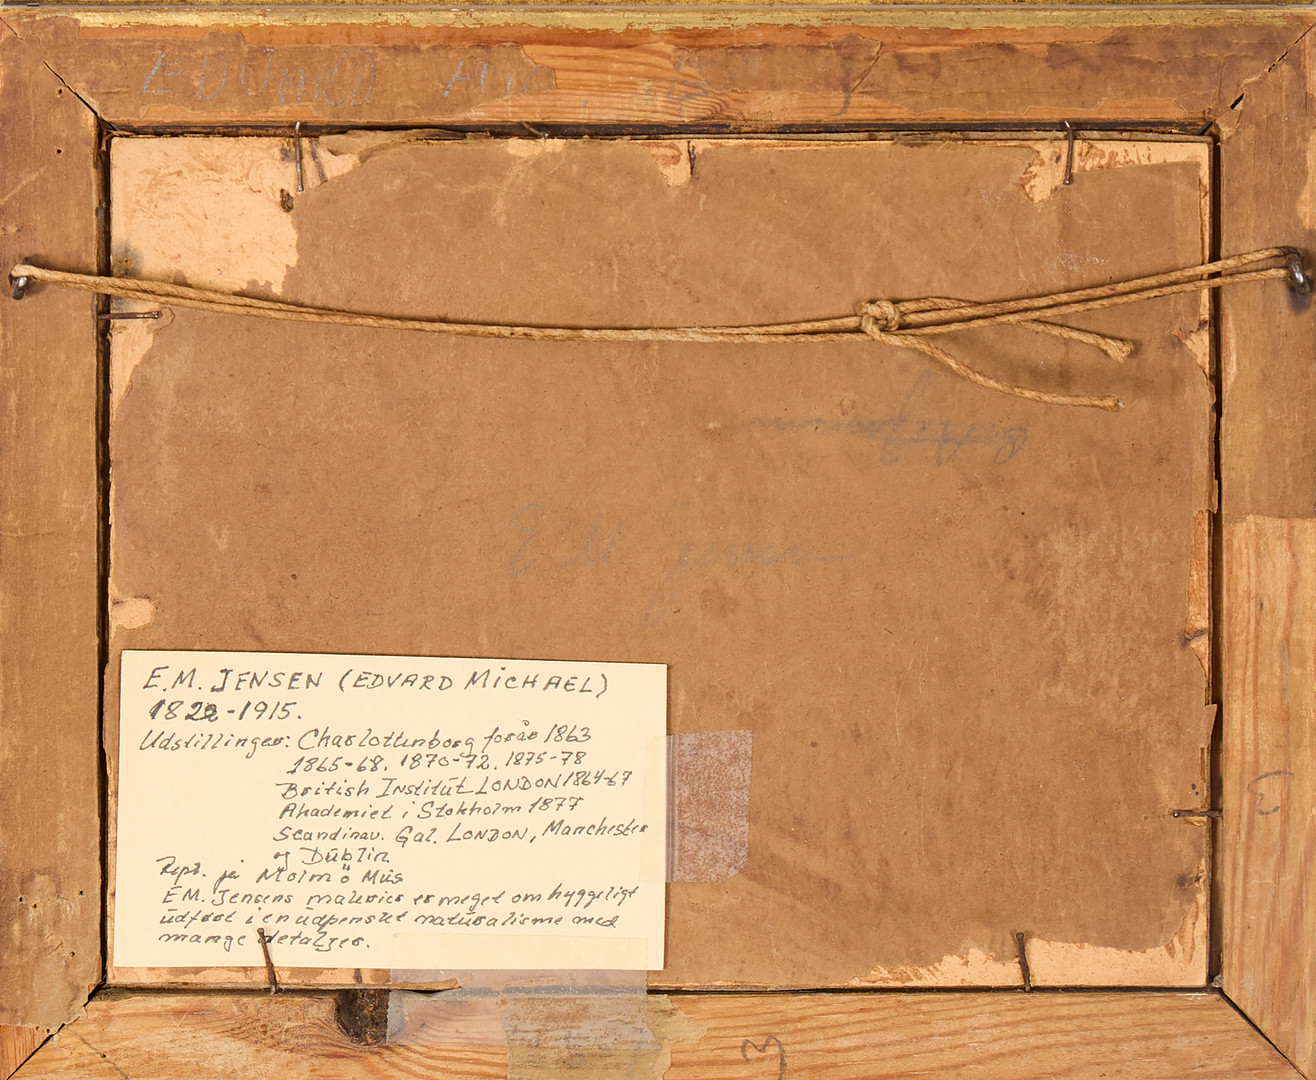 EDVARD MIC
E M Jensen
E.M. JENSEN (EDVARD MICHAEL)
1822-1915.
Udstillinger: Charlottenborg forår 1863
1865-68. 1870-72. 1875-78
British Institut LONDON 1864-67
Akademiet i Stokholm 1877
Scandinav. Gal. LONDON, Manchester
og Dublin
Rept. på Malmö Mus
E M. Jensens malerier er meget omhyggeligt
udført i en udpenslet naturalisme med
mange detaljer.
3
3